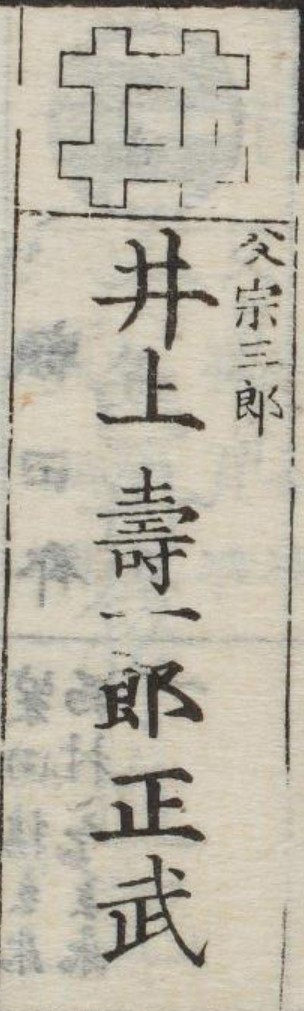 父宗三郎
井上壽一郎正武